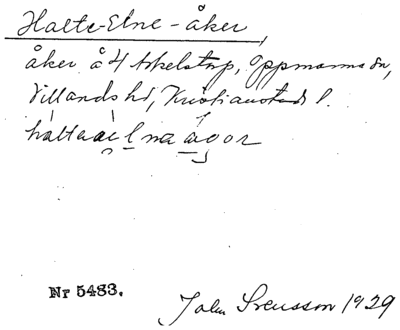 Halte-Elne-åker
åker å 4 Arkelstorp, Oppmanna sn,
Villands hd, Kristianstads l.
haltaelna ågor
Nr 5483.
John Svensson 1929